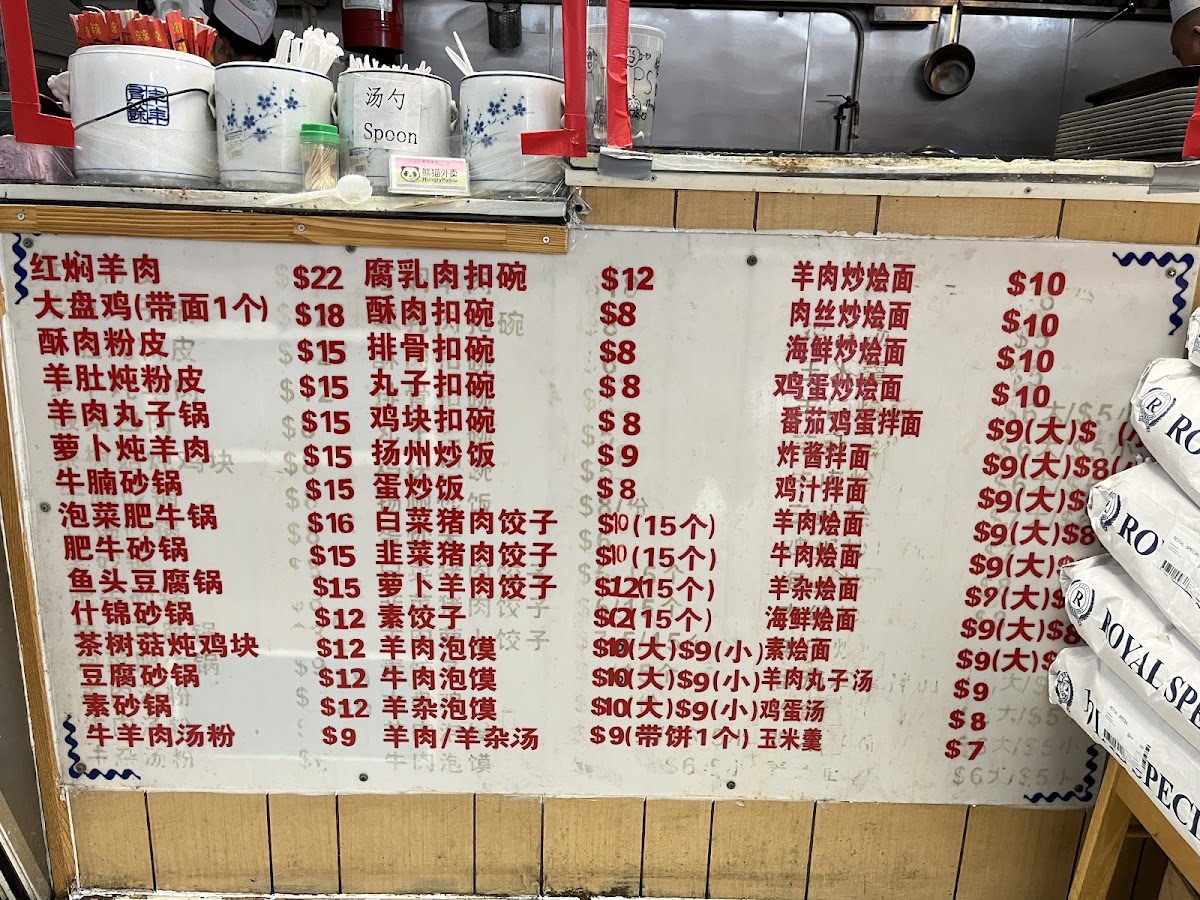 汤勺
Spoon
熊猫外卖
HungryPanda
红焖羊肉 $22
大盘鸡(带面1个) $18
酥肉粉皮 $15
羊肚炖粉皮 $15
羊肉丸子锅 $15
萝卜炖羊肉 $15
牛腩砂锅 $15
泡菜肥牛锅 $16
肥牛砂锅 $15
鱼头豆腐锅 $15
什锦砂锅 $12
茶树菇炖鸡块 $12
豆腐砂锅 $12
素砂锅 $12
牛羊肉汤粉 $9
腐乳肉扣碗 $12
酥肉扣碗 $8
排骨扣碗 $8
丸子扣碗 $8
鸡块扣碗 $8
扬州炒饭 $9
蛋炒饭 $8
白菜猪肉饺子 $10(15个)
韭菜猪肉饺子 $10(15个)
萝卜羊肉饺子 $12(15个)
素饺子 (15个)
羊肉泡馍 $10(大)$9(小)
牛肉泡馍 $10(大)$9(小)
羊杂泡馍 $10(大)$9(小)
羊肉/羊杂汤 $9(带饼1个)
羊肉炒烩面 $10
肉丝炒烩面 $10
海鲜炒烩面 $10
鸡蛋炒烩面 $10
番茄鸡蛋拌面 $9(大)$
炸酱拌面 $9(大)$8(
鸡汁拌面 $9(大)$
羊肉烩面 $9(大)$8
牛肉烩面 $9(大)
羊杂烩面 $9(大)$
海鲜烩面 $9(大)$8
素烩面 $9(大)$
羊肉丸子汤 $9
鸡蛋汤 $8
玉米羹 $7
RO
RO
ROYAL SP
PECI